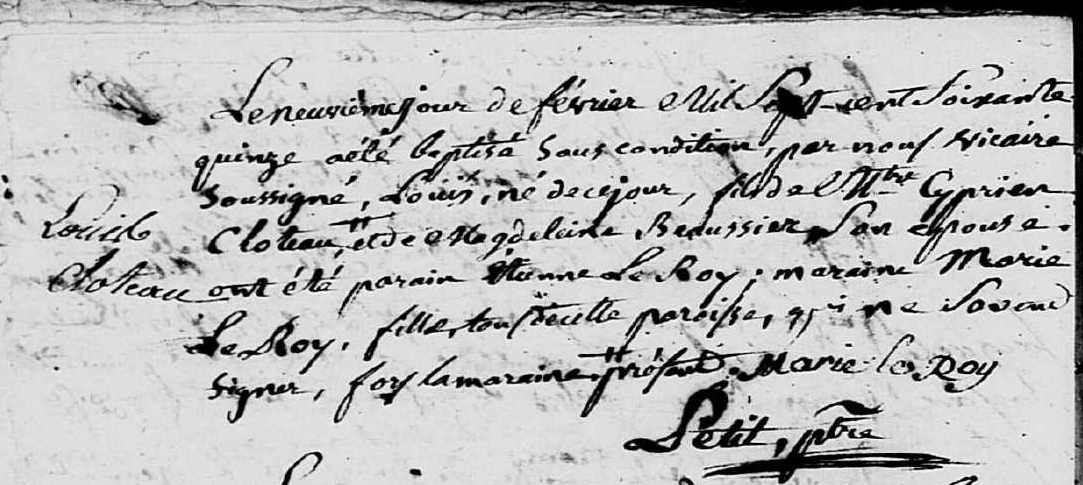 Le neuvième jour de février Mil Sept cent Soixante
quinze a été baptisé sous condition, par nous vicaire
soussigné, Louis, né de ce jour, fils de Mtre Cyprien
Louis
Cloteau, et de Magdeleine Beaussier Son épouse.
Cloteau
ont été parain Étienne Le Roy, maraine Marie
Le Roy, fille, tous de cette paroisse, qui ne Savent
signer, fors la maraine présent. Marie le Roy
Petit, ptre